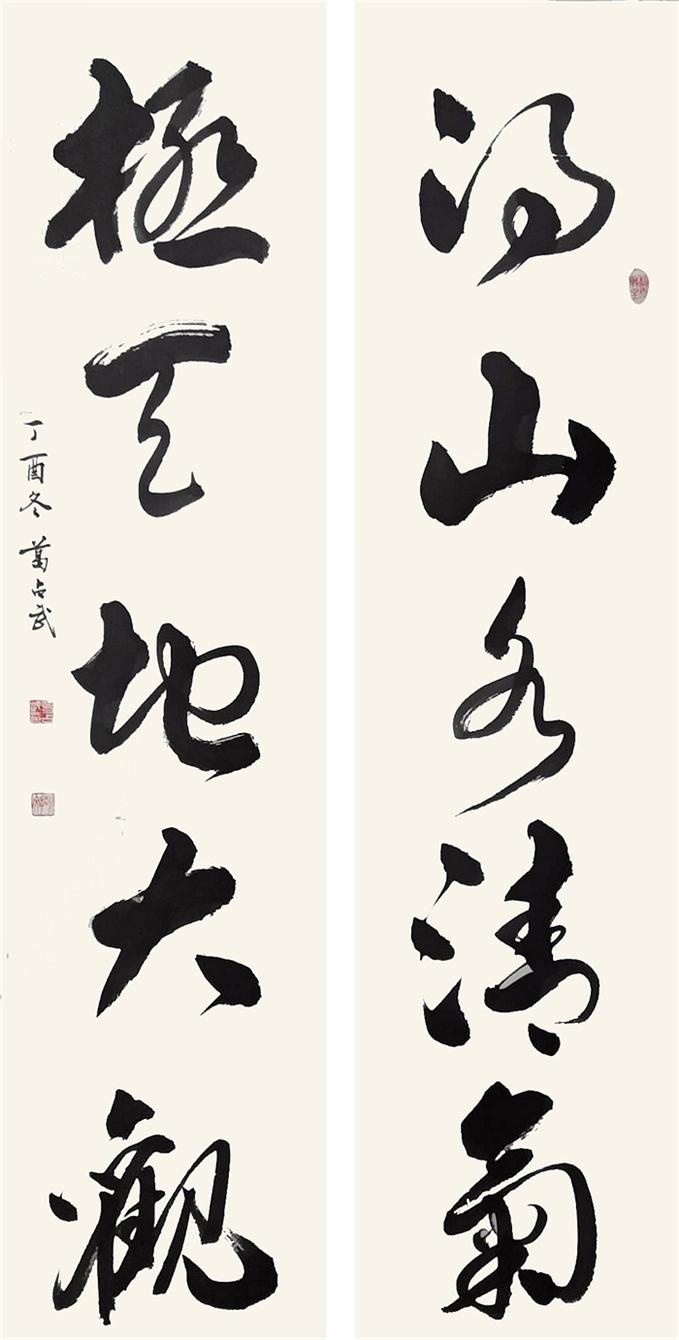 得山水清氣
極天地大觀
丁酉冬 葛占武